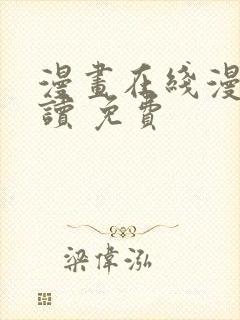 漫畫在綫漫
讀 免費
梁偉泓